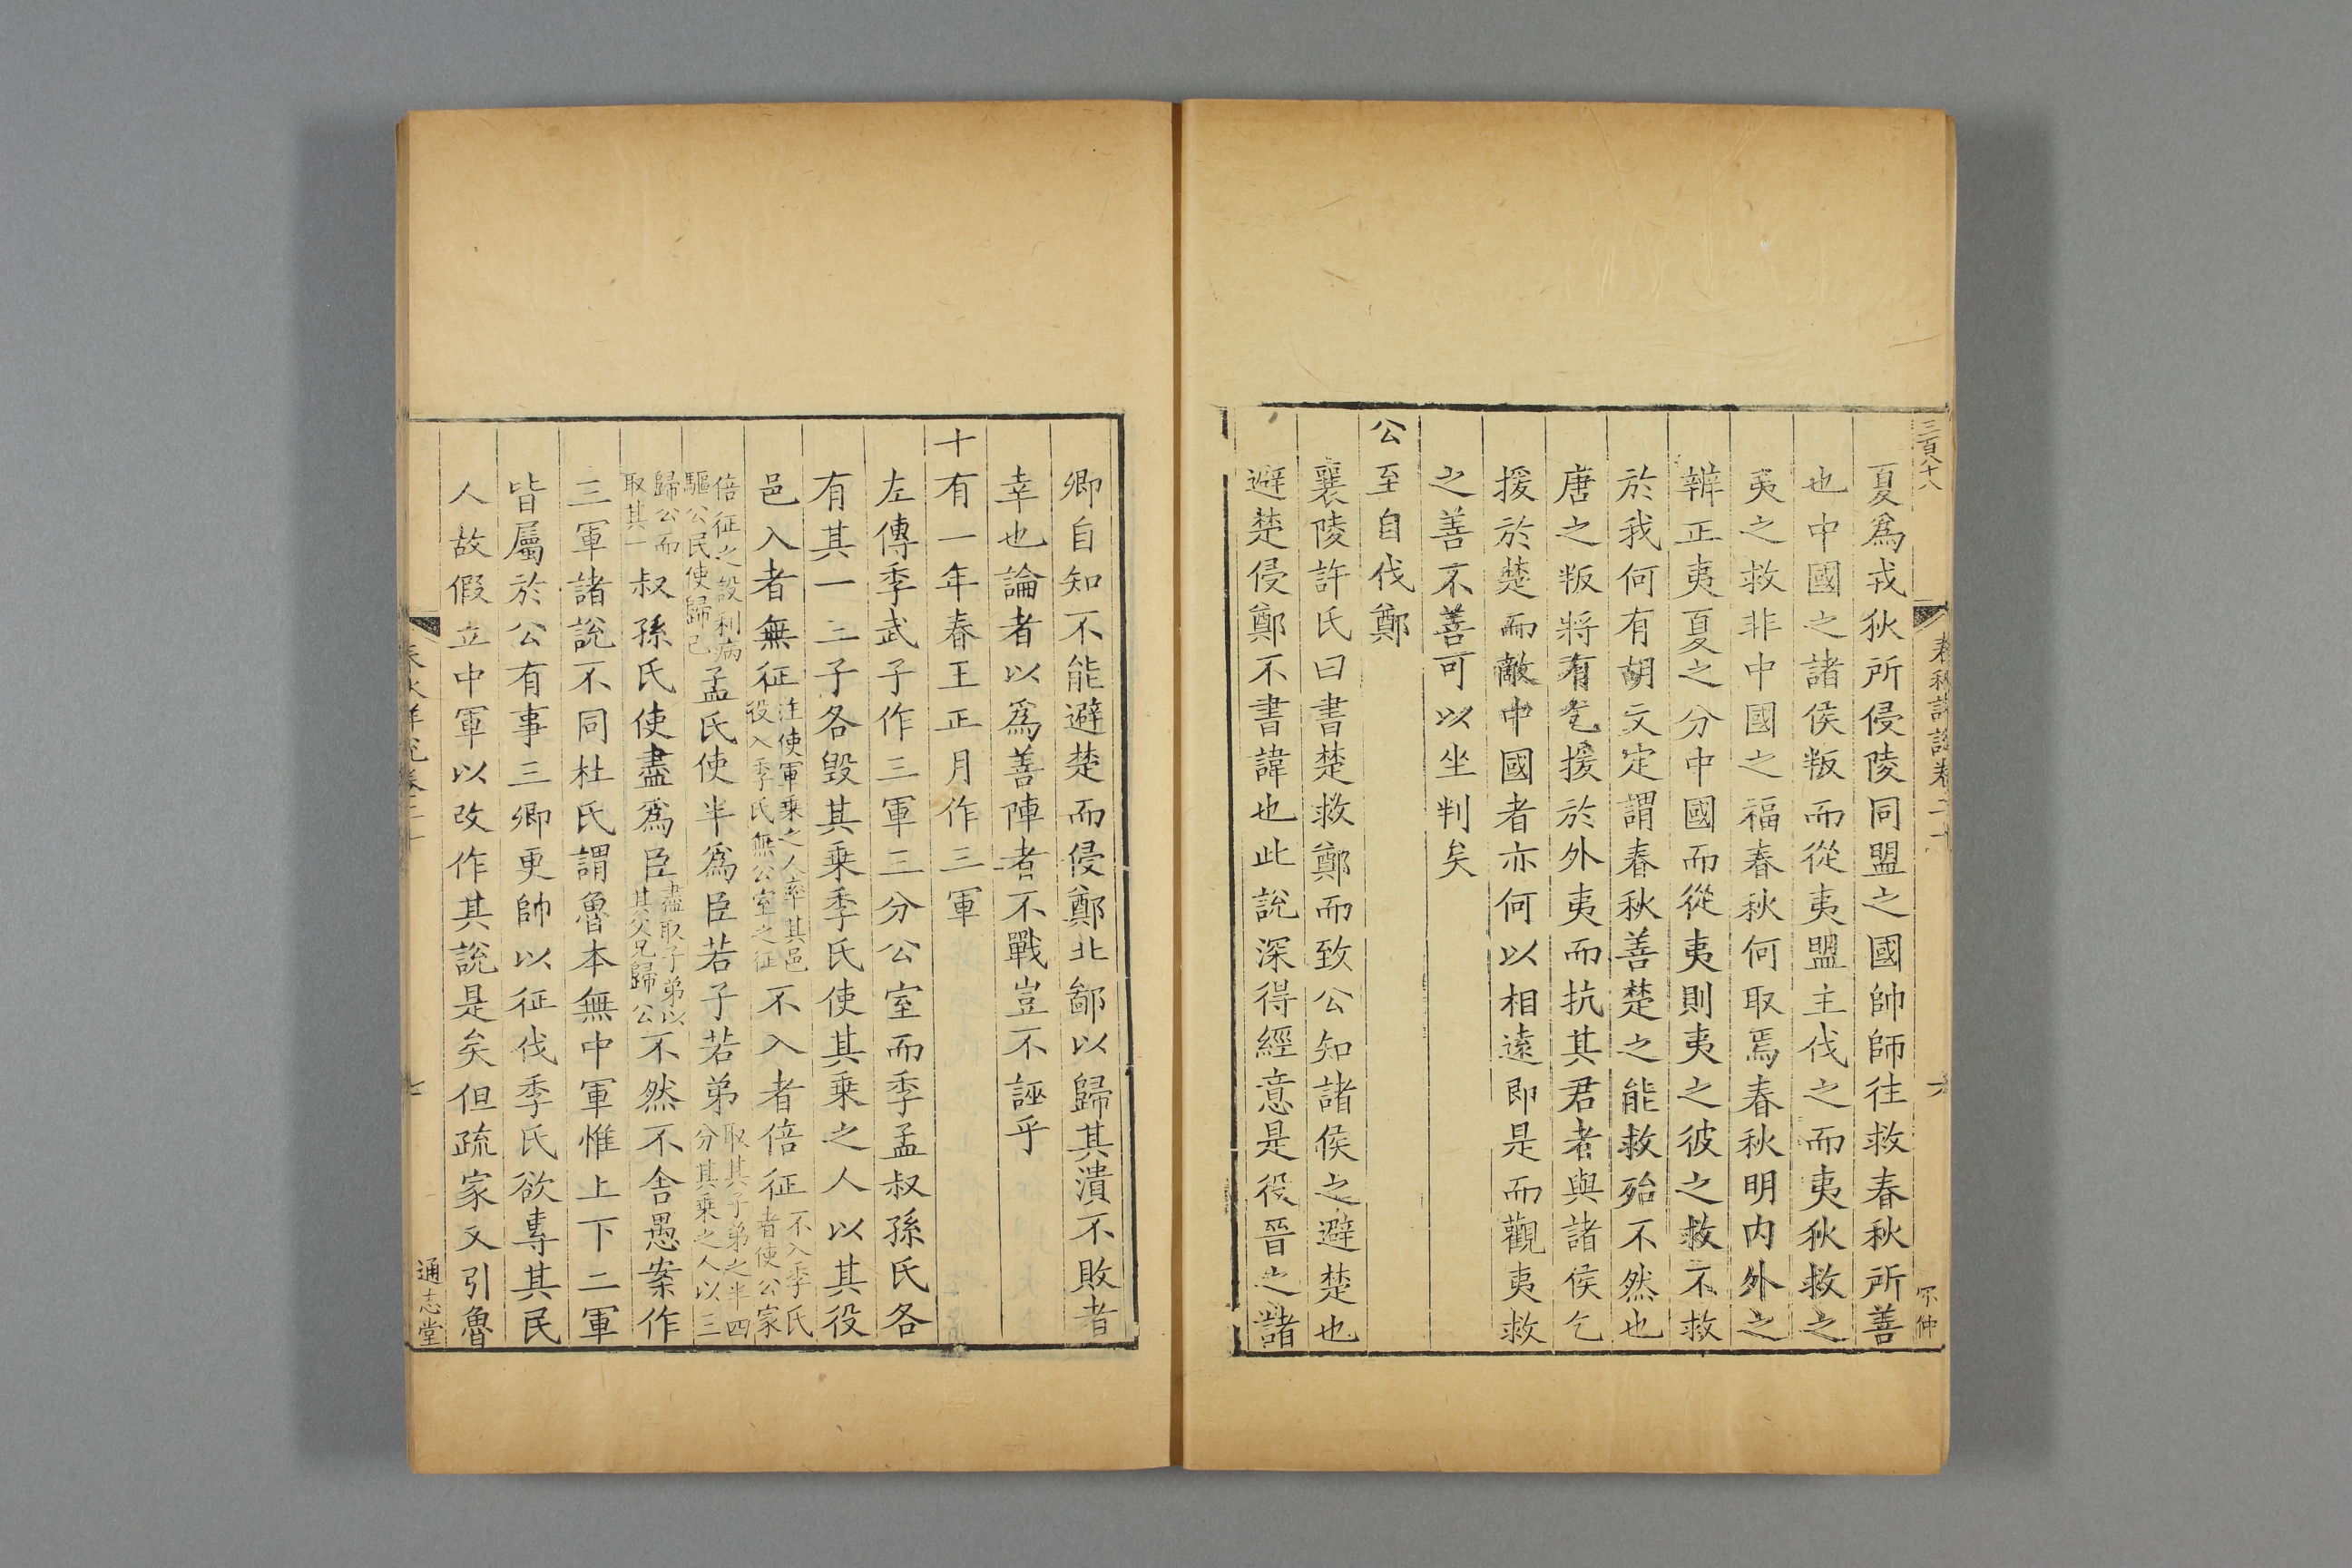 三百八十八
春秋詳說卷二十
六
不仲
夏爲戎狄所侵陵同盟之國帥師往救春秋所善
也中國之諸侯叛而從夷盟主伐之而夷狄救之
夷之救非中國之福春秋何取焉春秋明内外之
辨正夷夏之分中國而從夷則夷之彼之救不救
於我何有胡文定謂春秋善楚之能救殆不然也
唐之叛將有乞援於外夷而抗其君者與諸侯乞
援於楚而敵中國者亦何以相遠即是而觀夷救
之善不善可以坐判矣
公至自伐鄭
襄陵許氏曰書楚救鄭而致公知諸侯之避楚也
避楚侵鄭不書諱也此說深得經意是役晉之諸
卿自知不能避楚而侵鄭北鄙以歸其潰不敗者
幸也論者以爲善陣者不戰豈不誣乎
十有一年春王正月作三軍
左傳季武子作三軍三分公室而季孟叔孫氏各
有其一三子各毀其乗季氏使其乗之人以其役
邑入者無征注使軍乗之人率其邑役入季氏無公室之征不入者倍征不入季氏者使公家
倍征之設利病驅公民使歸己孟氏使半爲臣若子若弟取其子弟之半四分其乗之人以三
歸公而取其一叔孫氏使盡爲臣盡取子弟以其父兄歸公不然不舍愚案作
三軍諸說不同杜氏謂魯本無中軍惟上下二軍
皆屬於公有事三卿更帥以征伐季氏欲専其民
人故假立中軍以改作其說是矣但疏家又引魯
春秋詳說卷二十
七
通志堂